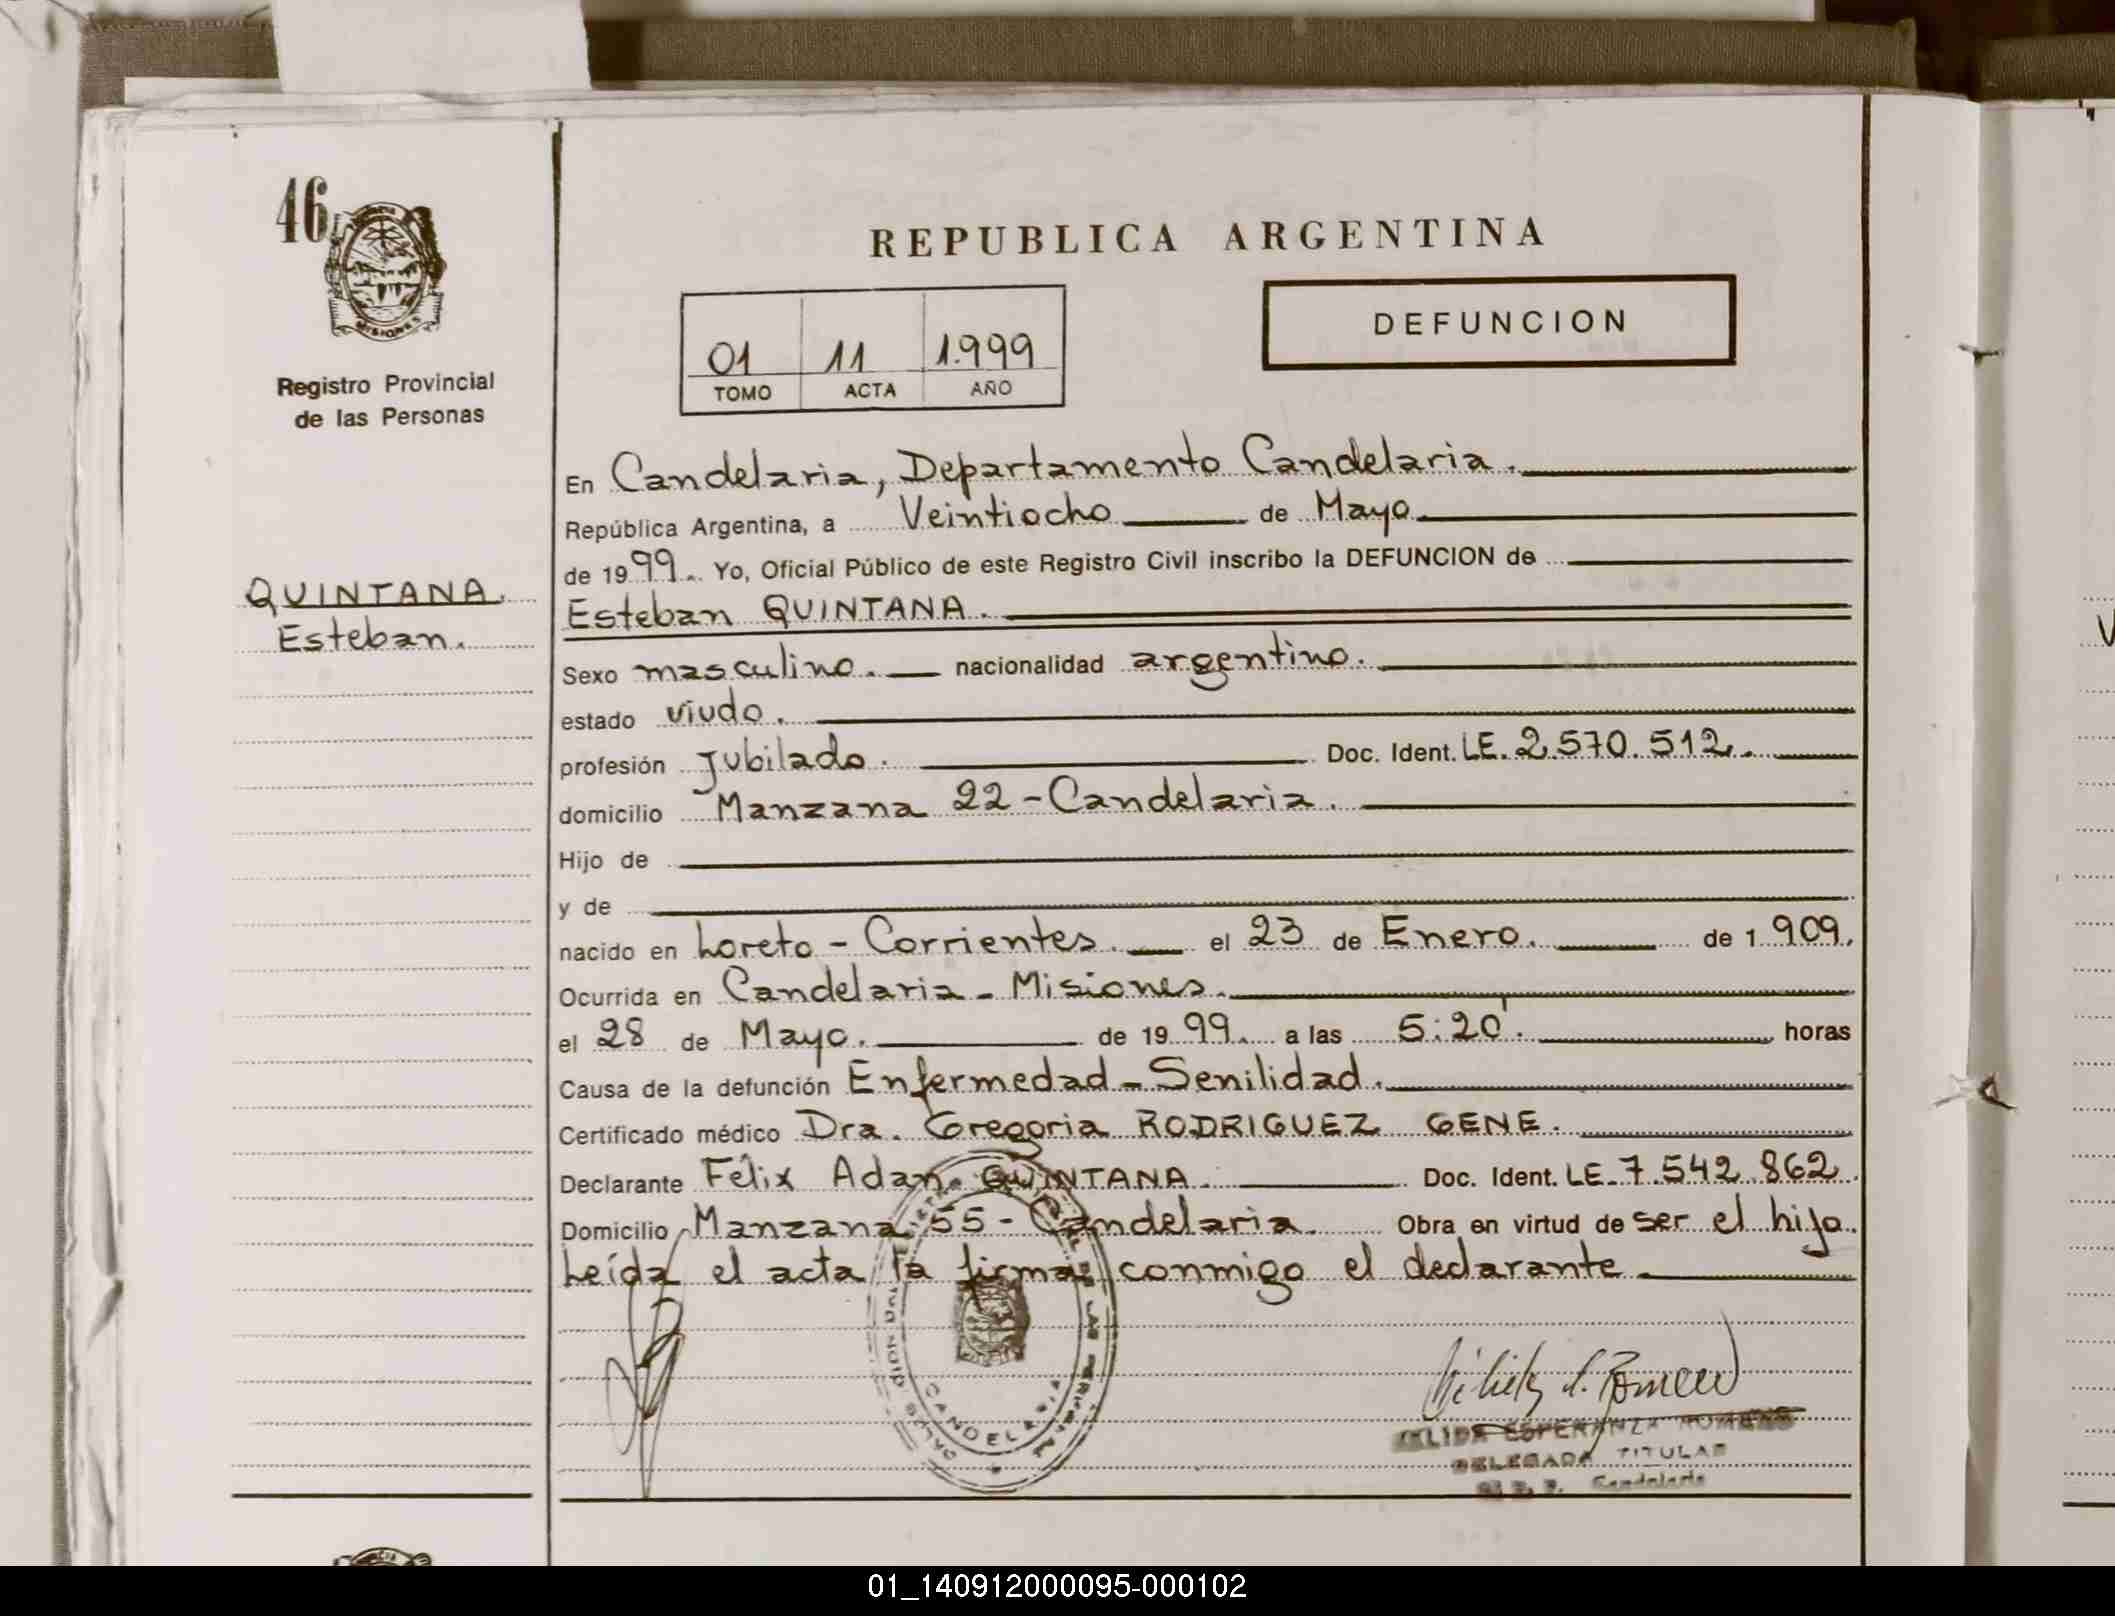 46
MISIONES
Registro Provincial
de las Personas
QUINTANA.
Esteban.
REPUBLICA ARGENTINA
DEFUNCION
01 11 1.999
TOMO ACTA AÑO
En Candelaria, Departamento Candelaria.
República Argentina, a Veintiocho de Mayo
de 1999. Yo, Oficial Público de este Registro Civil inscribo la DEFUNCION de
Esteban QUINTANA.
Sexo masculino. nacionalidad argentino.
estado viudo.
profesión Jubilado. Doc. Ident. LE. 2.570.512.
domicilio Manzana 22 - Candelaria.
Hijo de
y de
nacido en Loreto - Corrientes. el 23 de Enero. de 1909.
Ocurrida en Candelaria - Misiones.
el 28 de Mayo. de 1999. a las 5:20'. horas
Causa de la defunción Enfermedad - Senilidad.
Certificado médico Dra. Gregoria RODRIGUEZ GENE.
Declarante Félix Adan QUINTANA. Doc. Ident. LE. 7.542.862.
Domicilio Manzana 55 - Candelaria. Obra en virtud de ser el hijo.
Leída el acta la firma conmigo el declarante
CANDELARIA
ESPERANZA ROMERO
DELEGADA TITULAR
Candelaria
01_140912000095-000102